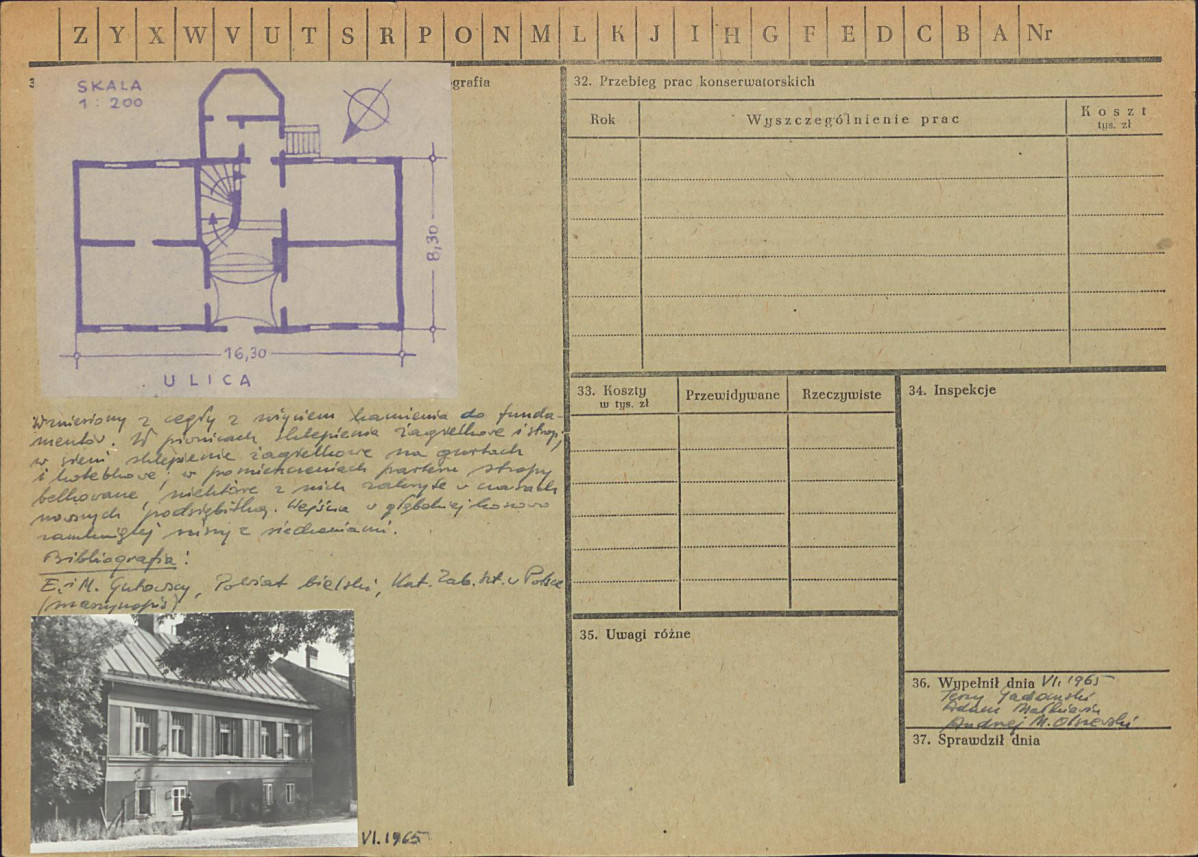 Z Y X W V U T S R P O N M L K J I H G F E D C B A Nr
3
grafia
SKALA
1 : 200
8,30
16,30
ULICA
Wzniesiony z cegły z użyciem kamienia do funda-
mentów. W piwnicach sklepienia żagielkowe i strop,
w sieni sklepienie żagielkowe na gurtach
i kolebkowe; w pomieszczeniach parteru stropy
belkowane, niektóre z nich zakryte w czasach
nowszych podsiębitką. Wejście w głębokiej koszowo
zamkniętej niszy z siedzeniami.
Bibliografia:
E. i M. Gutowscy, Powiat bielski, Kat. Zab. Szt. w Polsce
(maszynopis)
VI.1965
32. Przebieg prac konserwatorskich
Rok
Wyszczególnienie prac
Koszt
tys. zł
33. Koszty
w tys. zł
Przewidywane
Rzeczywiste
34. Inspekcje
35. Uwagi różne
36. Wypełnił dnia VI.1965
Jerzy Gadomski
Adam Małkiewicz
Andrzej M. Olszewski
37. Sprawdził dnia